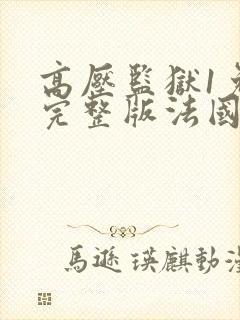 高壓監獄1
完整版法國
馬遜瑛麒動漫